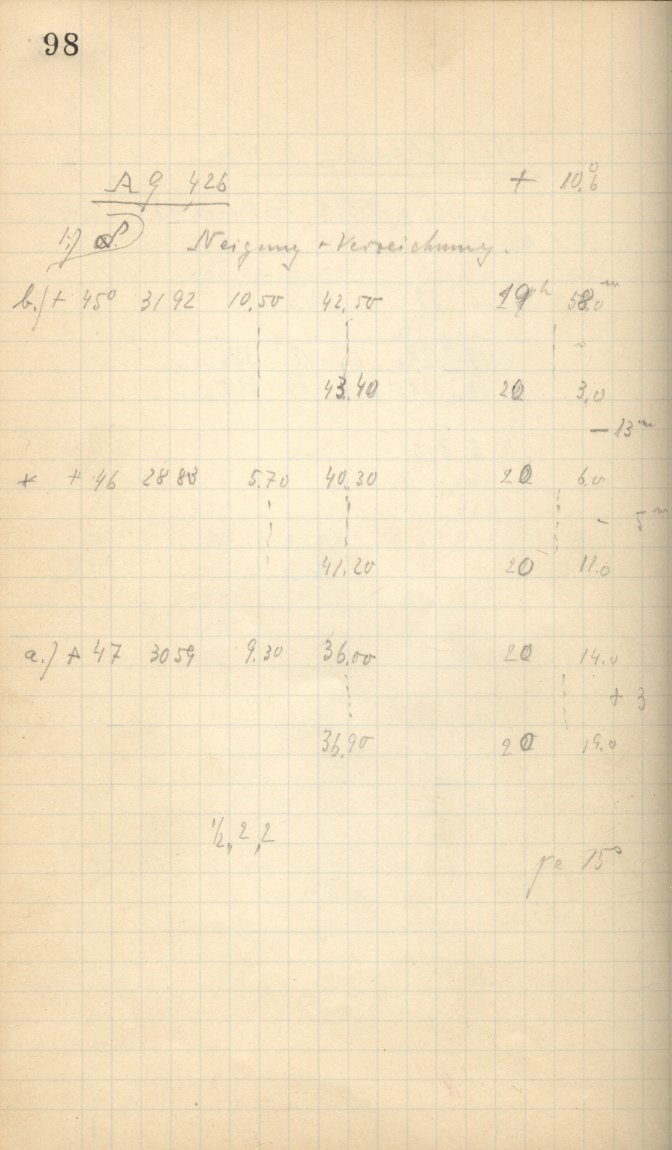 98
A 9 426 + 10,6°
1.) Neigung + Verzeichnung.
b.) + 45° 3192 10,50 42,50 19h 58,0m
43.40 20 3,0
— 13m
* + 46 2883 5.70 40,30 20 6.0
- 5m
41.20 20 11.0
a.) + 47 3059 9.30 36,00 20 14.0
+ 3
36,90 20 19.0
1/2, 2, 2
je 15s